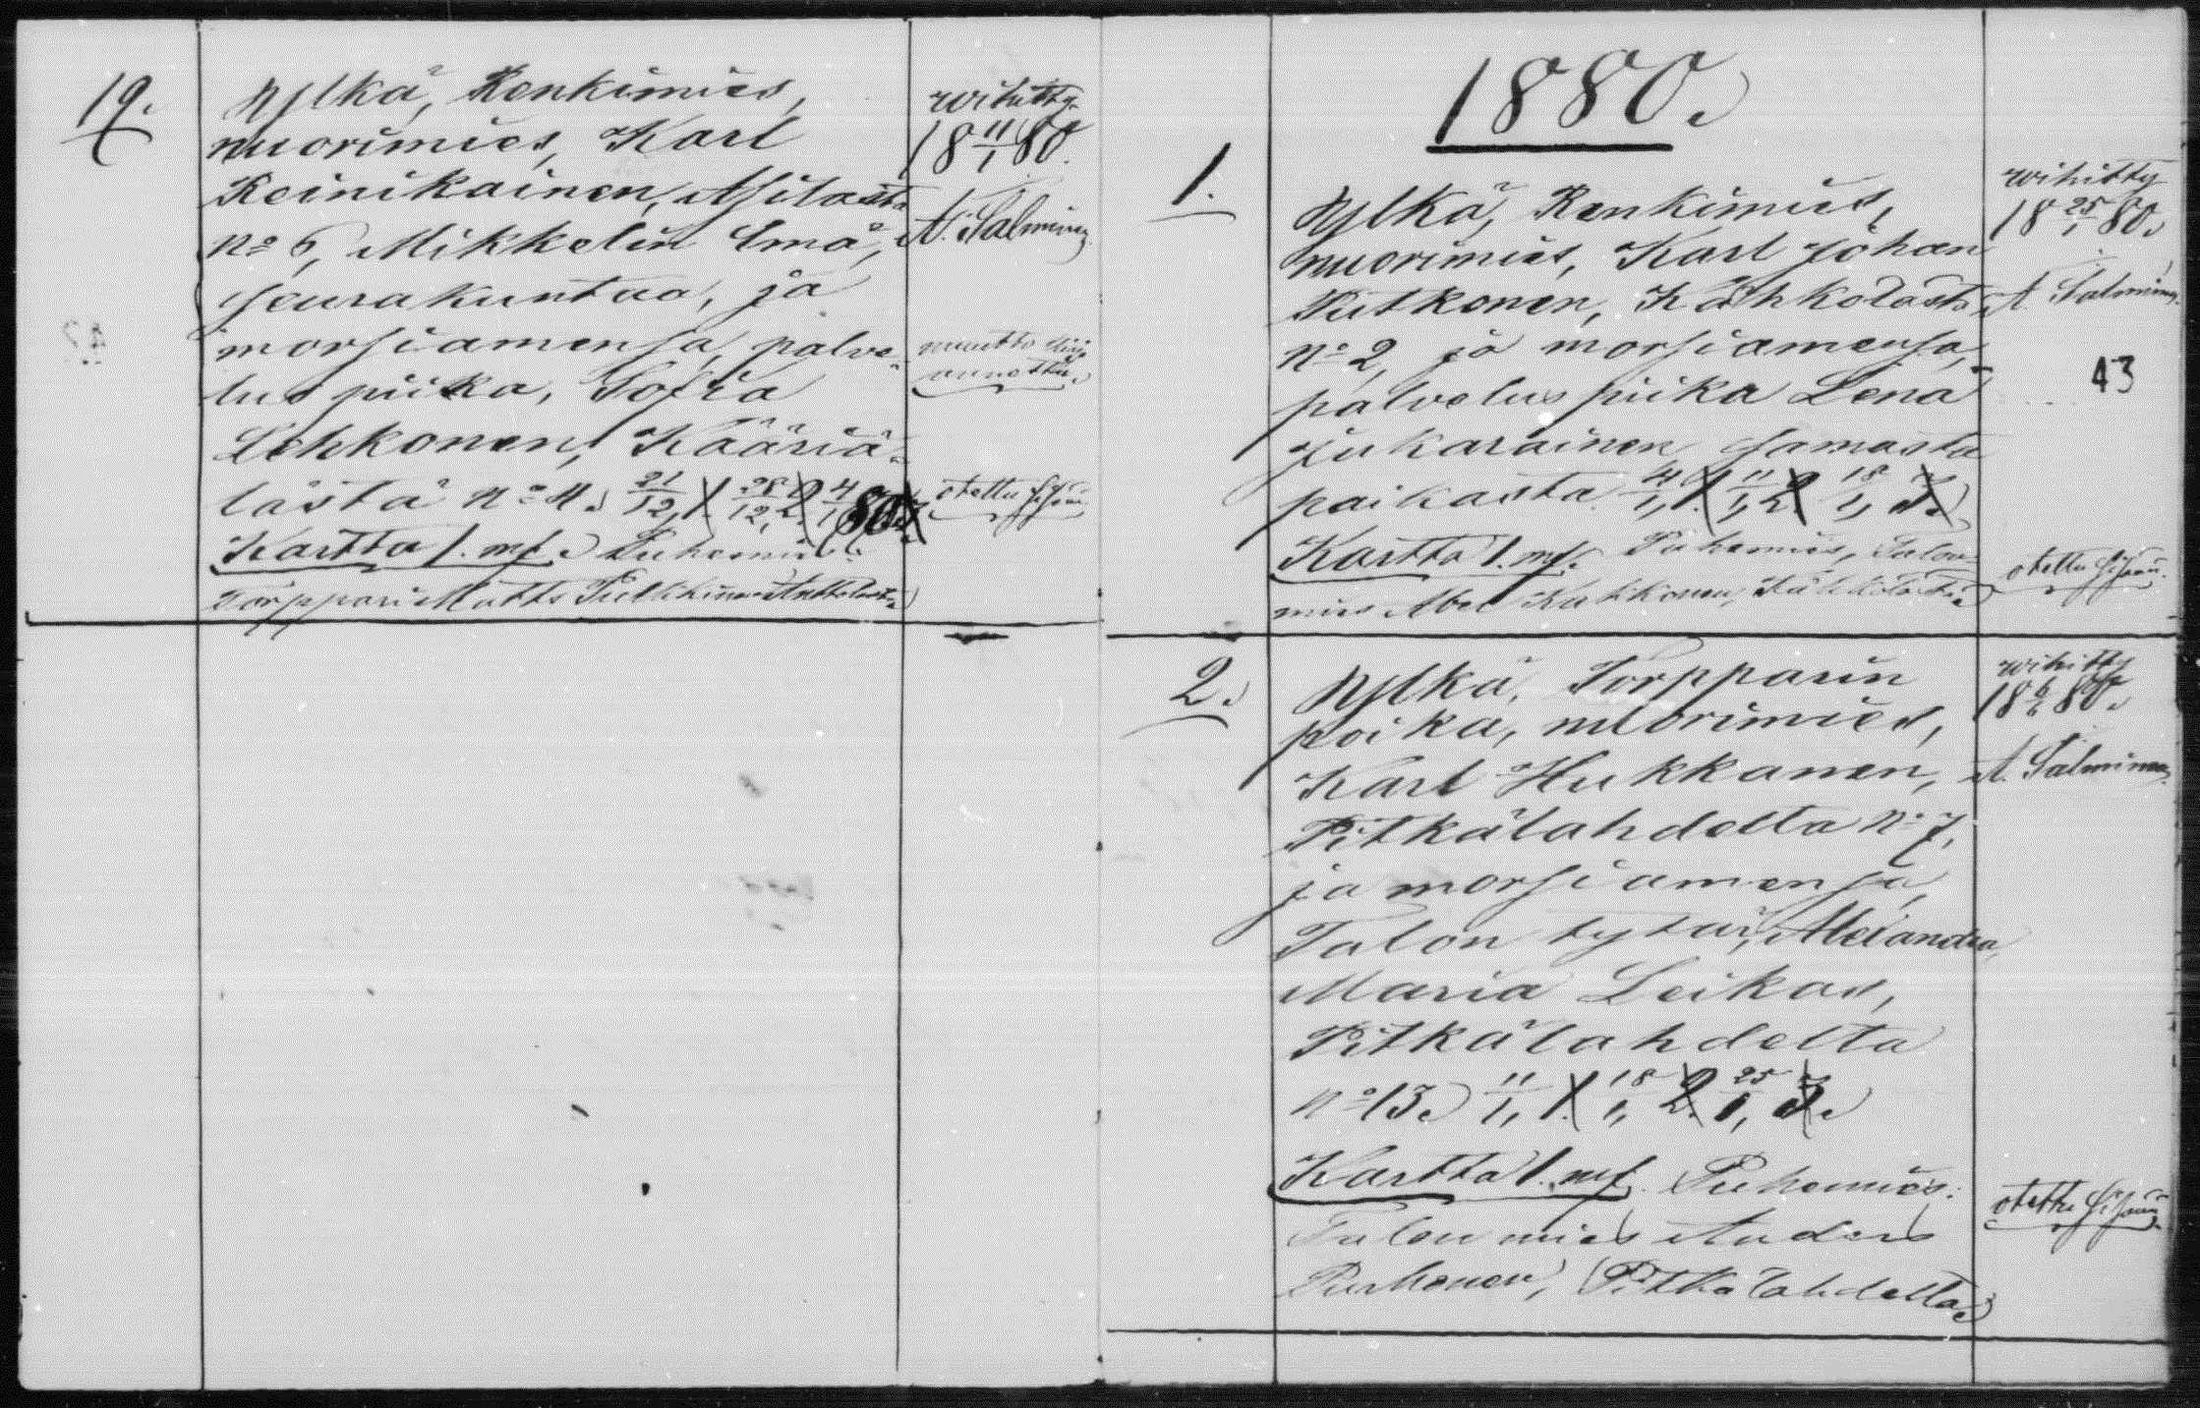 19.
Ylkä, Renkimies,
nuorimies, Karl
Reinikainen, Asilasta
No 6, Mikkelin Emä,
seurakuntaa, ja
morsiamensa, palve-
lus piika, Sofia
Lehkonen, Kääriä-
lästä No 4. 21/12, 1. 28/12, 2. 4/1 80.
Kartta 1. mk. Puhemies:
Torppari Matts Pulkkinen Anttolasta
wihitty
18 11/1 80.
A. Salminen
muutto kirja
annettu.
otettu sisään
1880.
1.
Ylkä, Renkimies,
nuorimies, Karl Johan
Putkonen, Kähkölästä
No 2, ja morsiamensa,
palvelus piika Lena
Jukarainen samasta
paikasta. 4/1, 1. 11/1, 2. 18/1, 3.
Kartta 1. mk. Puhemies, Talon
mies Abel Kähkönen, Kähkölästä
wihitty
18 25/1 80.
A. Salminen
43
otettu sisään.
2.
Ylkä, Torpparin
poika, nuorimies,
Karl Hukkanen,
Pitkälahdelta No 7,
ja morsiamensa,
Talon tytär, Alexandra
Maria Leikas,
Pitkälahdelta
No 13. 11/1, 1. 18/1, 2. 25/1, 3.
Kartta 1. mk. Puhemies:
Talon mies Anders
Purhonen, Pitkälahdelta
wihitty
18 80.
A. Salminen
otettu sisään